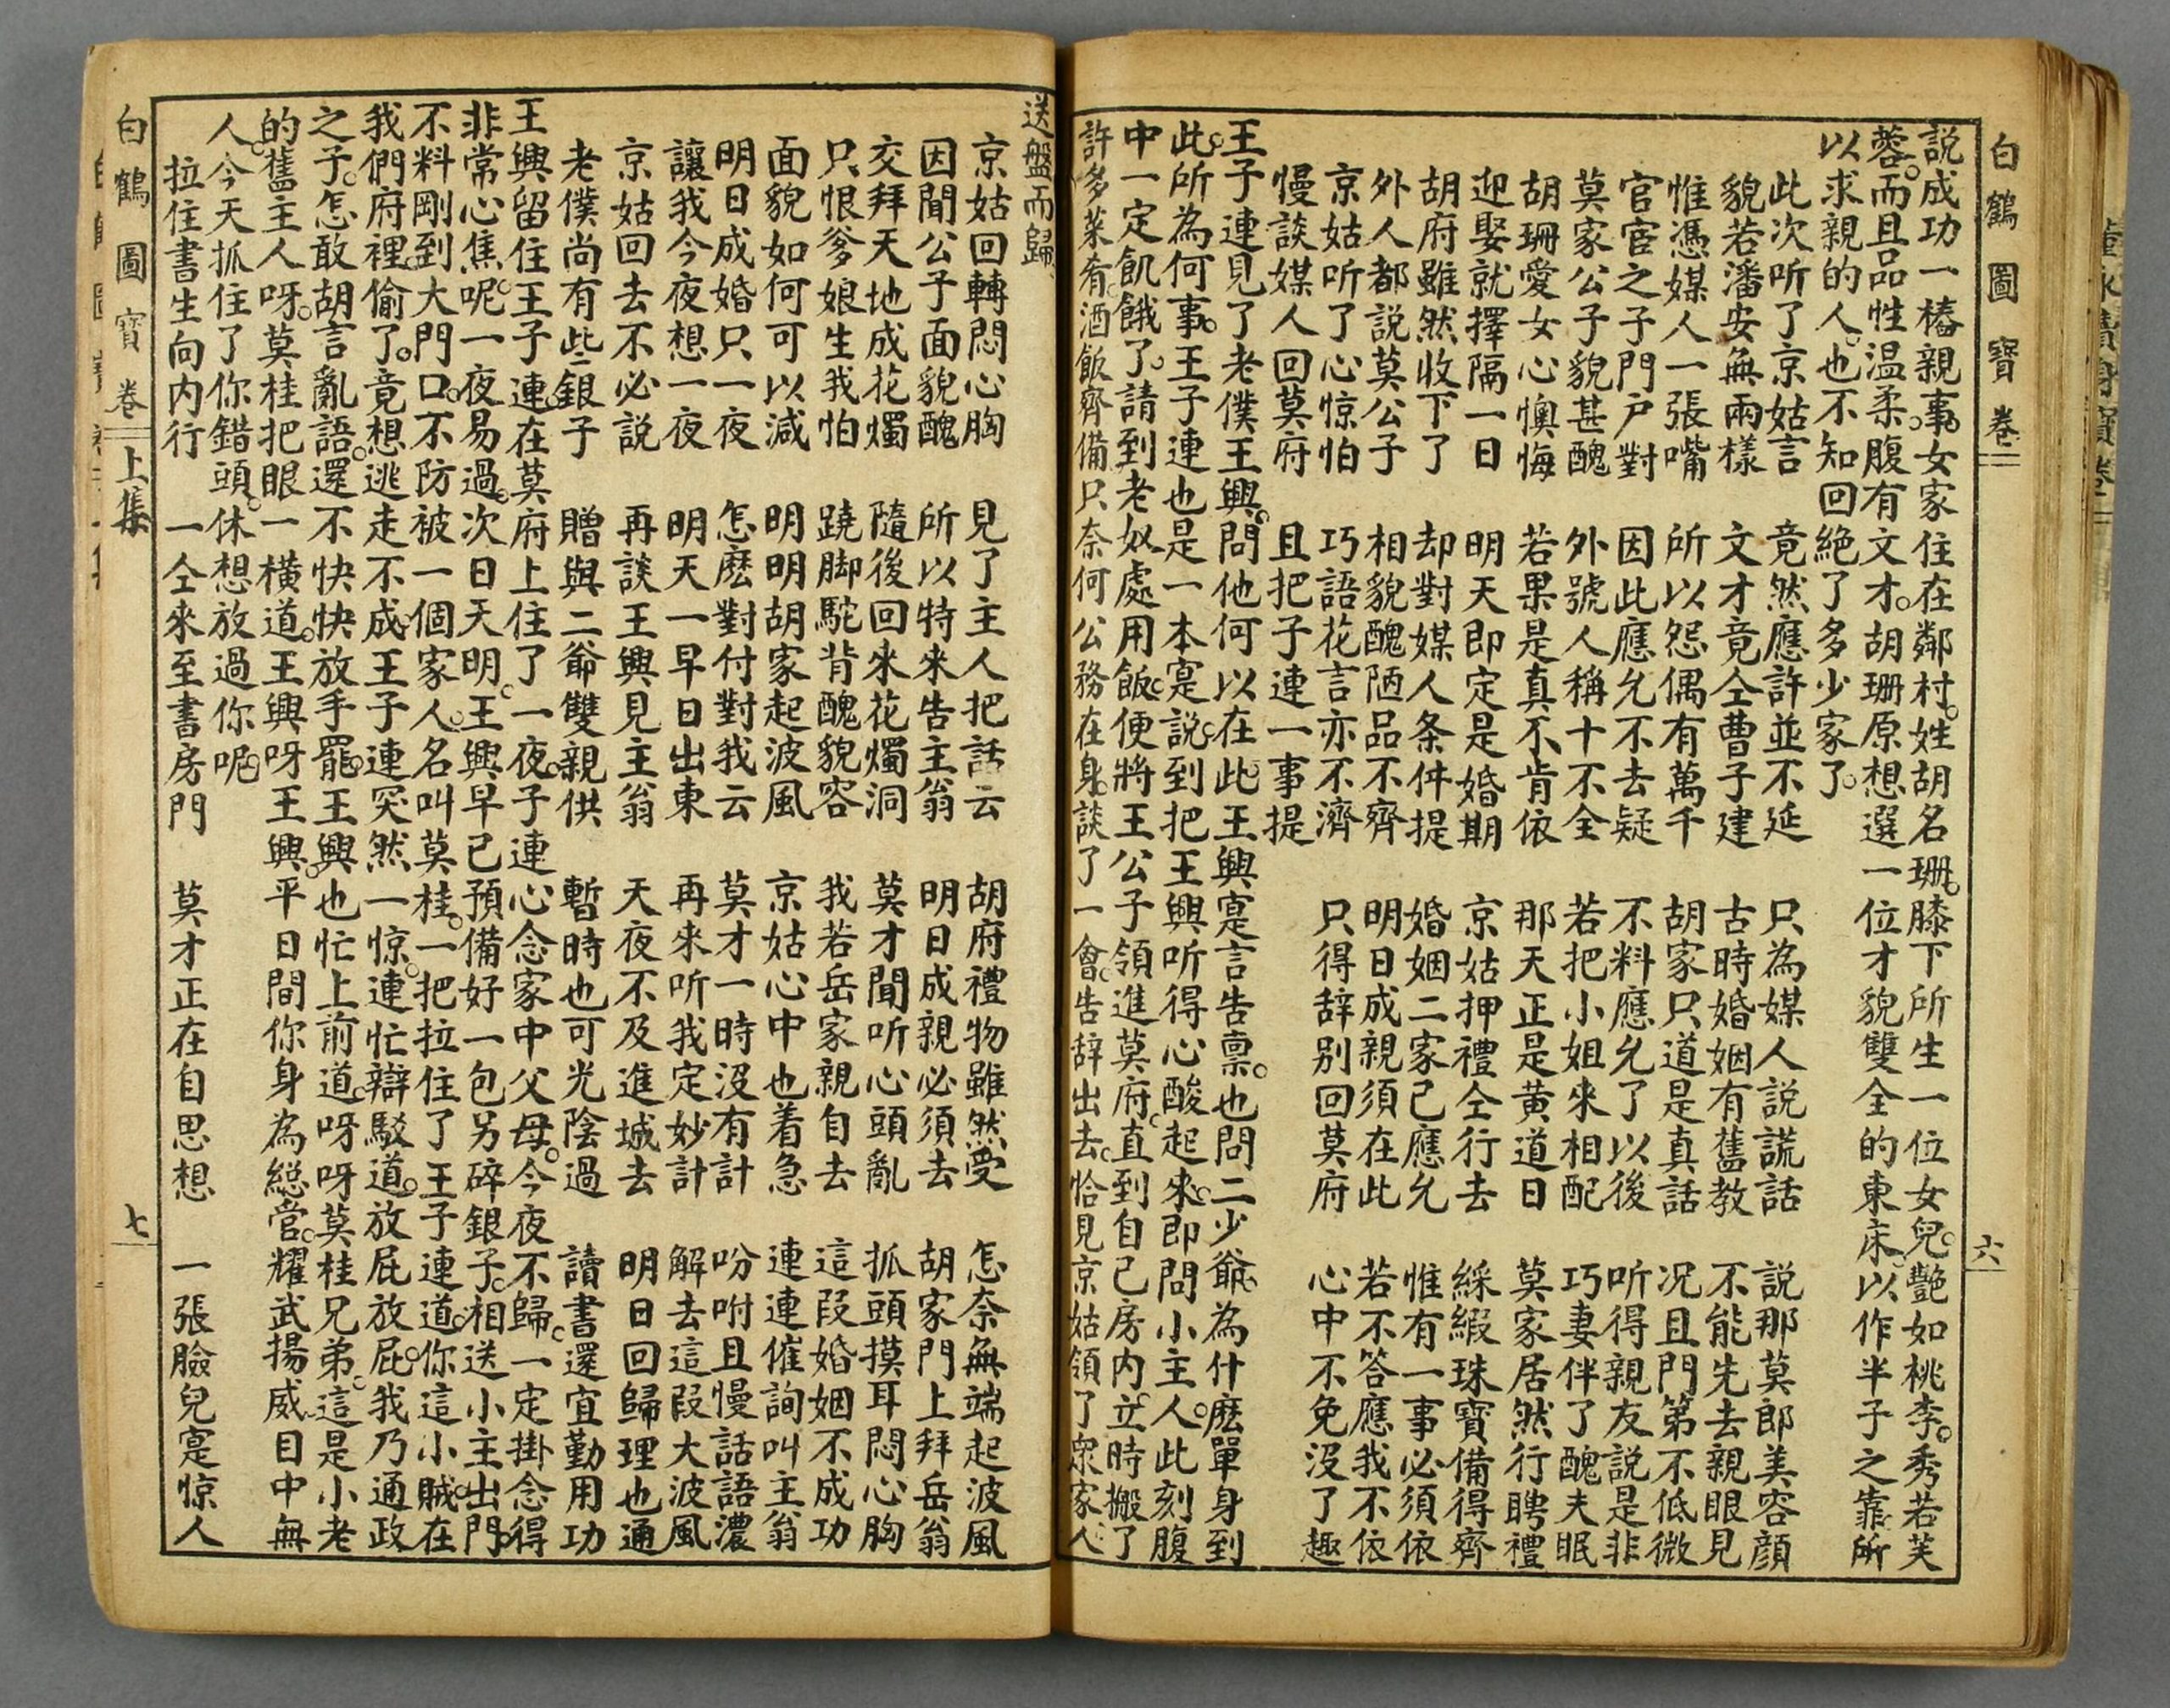 白鶴圖寶卷
六
說成功一樁親事。女家住在鄰村。姓胡名珊。膝下所生一位女兒。艷如桃李。秀若芙
蓉。而且品性温柔。腹有文才。胡珊原想選一位才貌雙全的東床。以作半子之靠。所
以求親的人。也不知回絕了多少家了。
此次听了京姑言　竟然應許並不延　只為媒人說謊話　說那莫郎美容顏
貌若潘安無兩樣　文才竟仝曹子建　古時婚姻有舊教　不能先去親眼見
惟憑媒人一張嘴　所以怨偶有萬千　胡家只道是真話　况且門第不低微
官宦之子門户對　因此應允不去疑　不料應允了以後　听得親友說是非
莫家公子貌甚醜　外號人稱十不全　若把小姐來相配　巧妻伴了醜夫眠
胡珊愛女心懊悔　若果是真不肯依　那天正是黄道日　莫家居然行聘禮
迎娶就擇隔一日　明天即定是婚期　京姑押禮仝行去　綵緞珠寶備得齊
胡府雖然收下了　却對媒人条件提　婚姻二家已應允　惟有一事必須依
外人都說莫公子　相貌醜陋品不齊　明日成親須在此　若不答應我不依
京姑听了心惊怕　巧語花言亦不濟　只得辞别回莫府　心中不免沒了趣
慢談媒人回莫府　且把子連一事提
王子連見了老僕王興。問他何以在此。王興寔言告禀。也問二少爺。為什麽單身到
此。所為何事。王子連也是一本寔說。到把王興听得心酸起來。即問小主人。此刻腹
中一定飢餓了。請到老奴處用飯。便將王公子領進莫府。直到自己房内。立時搬了
許多菜肴。酒飯齊備。只奈何公務在身。談了一會。告辞出去。恰見京姑領了衆家人。
送盤而歸。
京姑回轉悶心胸　見了主人把話云　胡府禮物雖然受　怎奈無端起波風
因聞公子面貌醜　所以特來告主翁　明日成親必須去　胡家門上拜岳翁
交拜天地成花燭　隨後回來花燭洞　莫才聞听心頭亂　抓頭摸耳悶心胸
只恨爹娘生我怕　蹺脚駝背醜貌容　我若岳家親自去　這叚婚姻不成功
面貌如何可以減　明明胡家起波風　京姑心中也着急　連連催詢叫主翁
明日成婚只一夜　怎麽對付對我云　莫才一時沒有計　吩咐且慢話語濃
讓我今夜想一夜　明天一早日出東　再來听我定妙計　解去這叚大波風
京姑回去不必說　再談王興見主翁　天夜不及進城去　明日回歸理也通
老僕尚有些銀子　贈與二爺雙親供　暫時也可光陰過　讀書還宜勤用功
王興留住王子連。在莫府上住了一夜。子連心念家中父母。今夜不歸。一定掛念得
非常心焦呢。一夜易過。次日天明。王興早已預備好一包另碎銀子。相送小主出門。
不料剛到大門口。不防被一個家人。名叫莫桂。一把拉住了王子連道。你這小賊。在
我們府裡。偷了。竟想逃走不成。王子連突然一惊。連忙辯駁道。放屁放屁。我乃通政
之子。怎敢胡言亂語。還不快快放手罷。王興也忙上前道。呀呀莫桂兄弟。這是小老
的舊主人呀。莫桂把眼一横道。王興呀王興。平日間你身為総管。耀武揚威。目中無
人。今天抓住了你錯頭。休想放過你呢。
拉住書生向内行　一仝來至書房門　莫才正在自思想　一張臉兒寔惊人
白鶴圖寶卷　上集
七